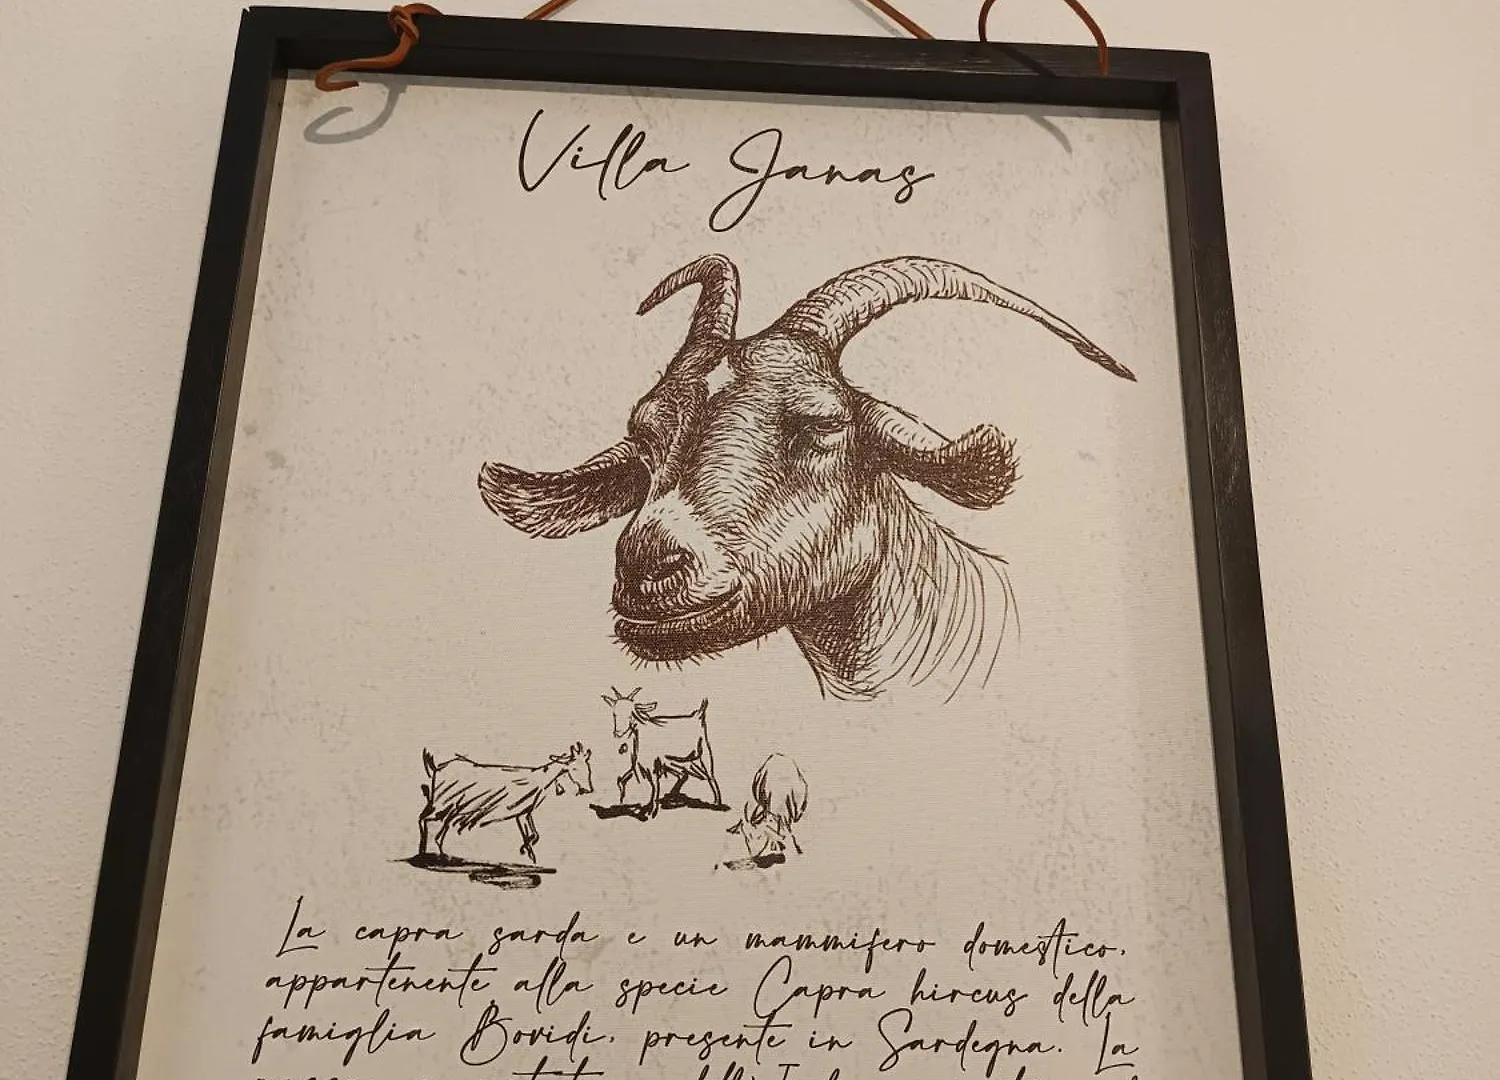 Villa Janas
La capra sarda e un mammifero domestico,
appartenente alla specie Capra hircus della
famiglia Bovidi, presente in Sardegna. La